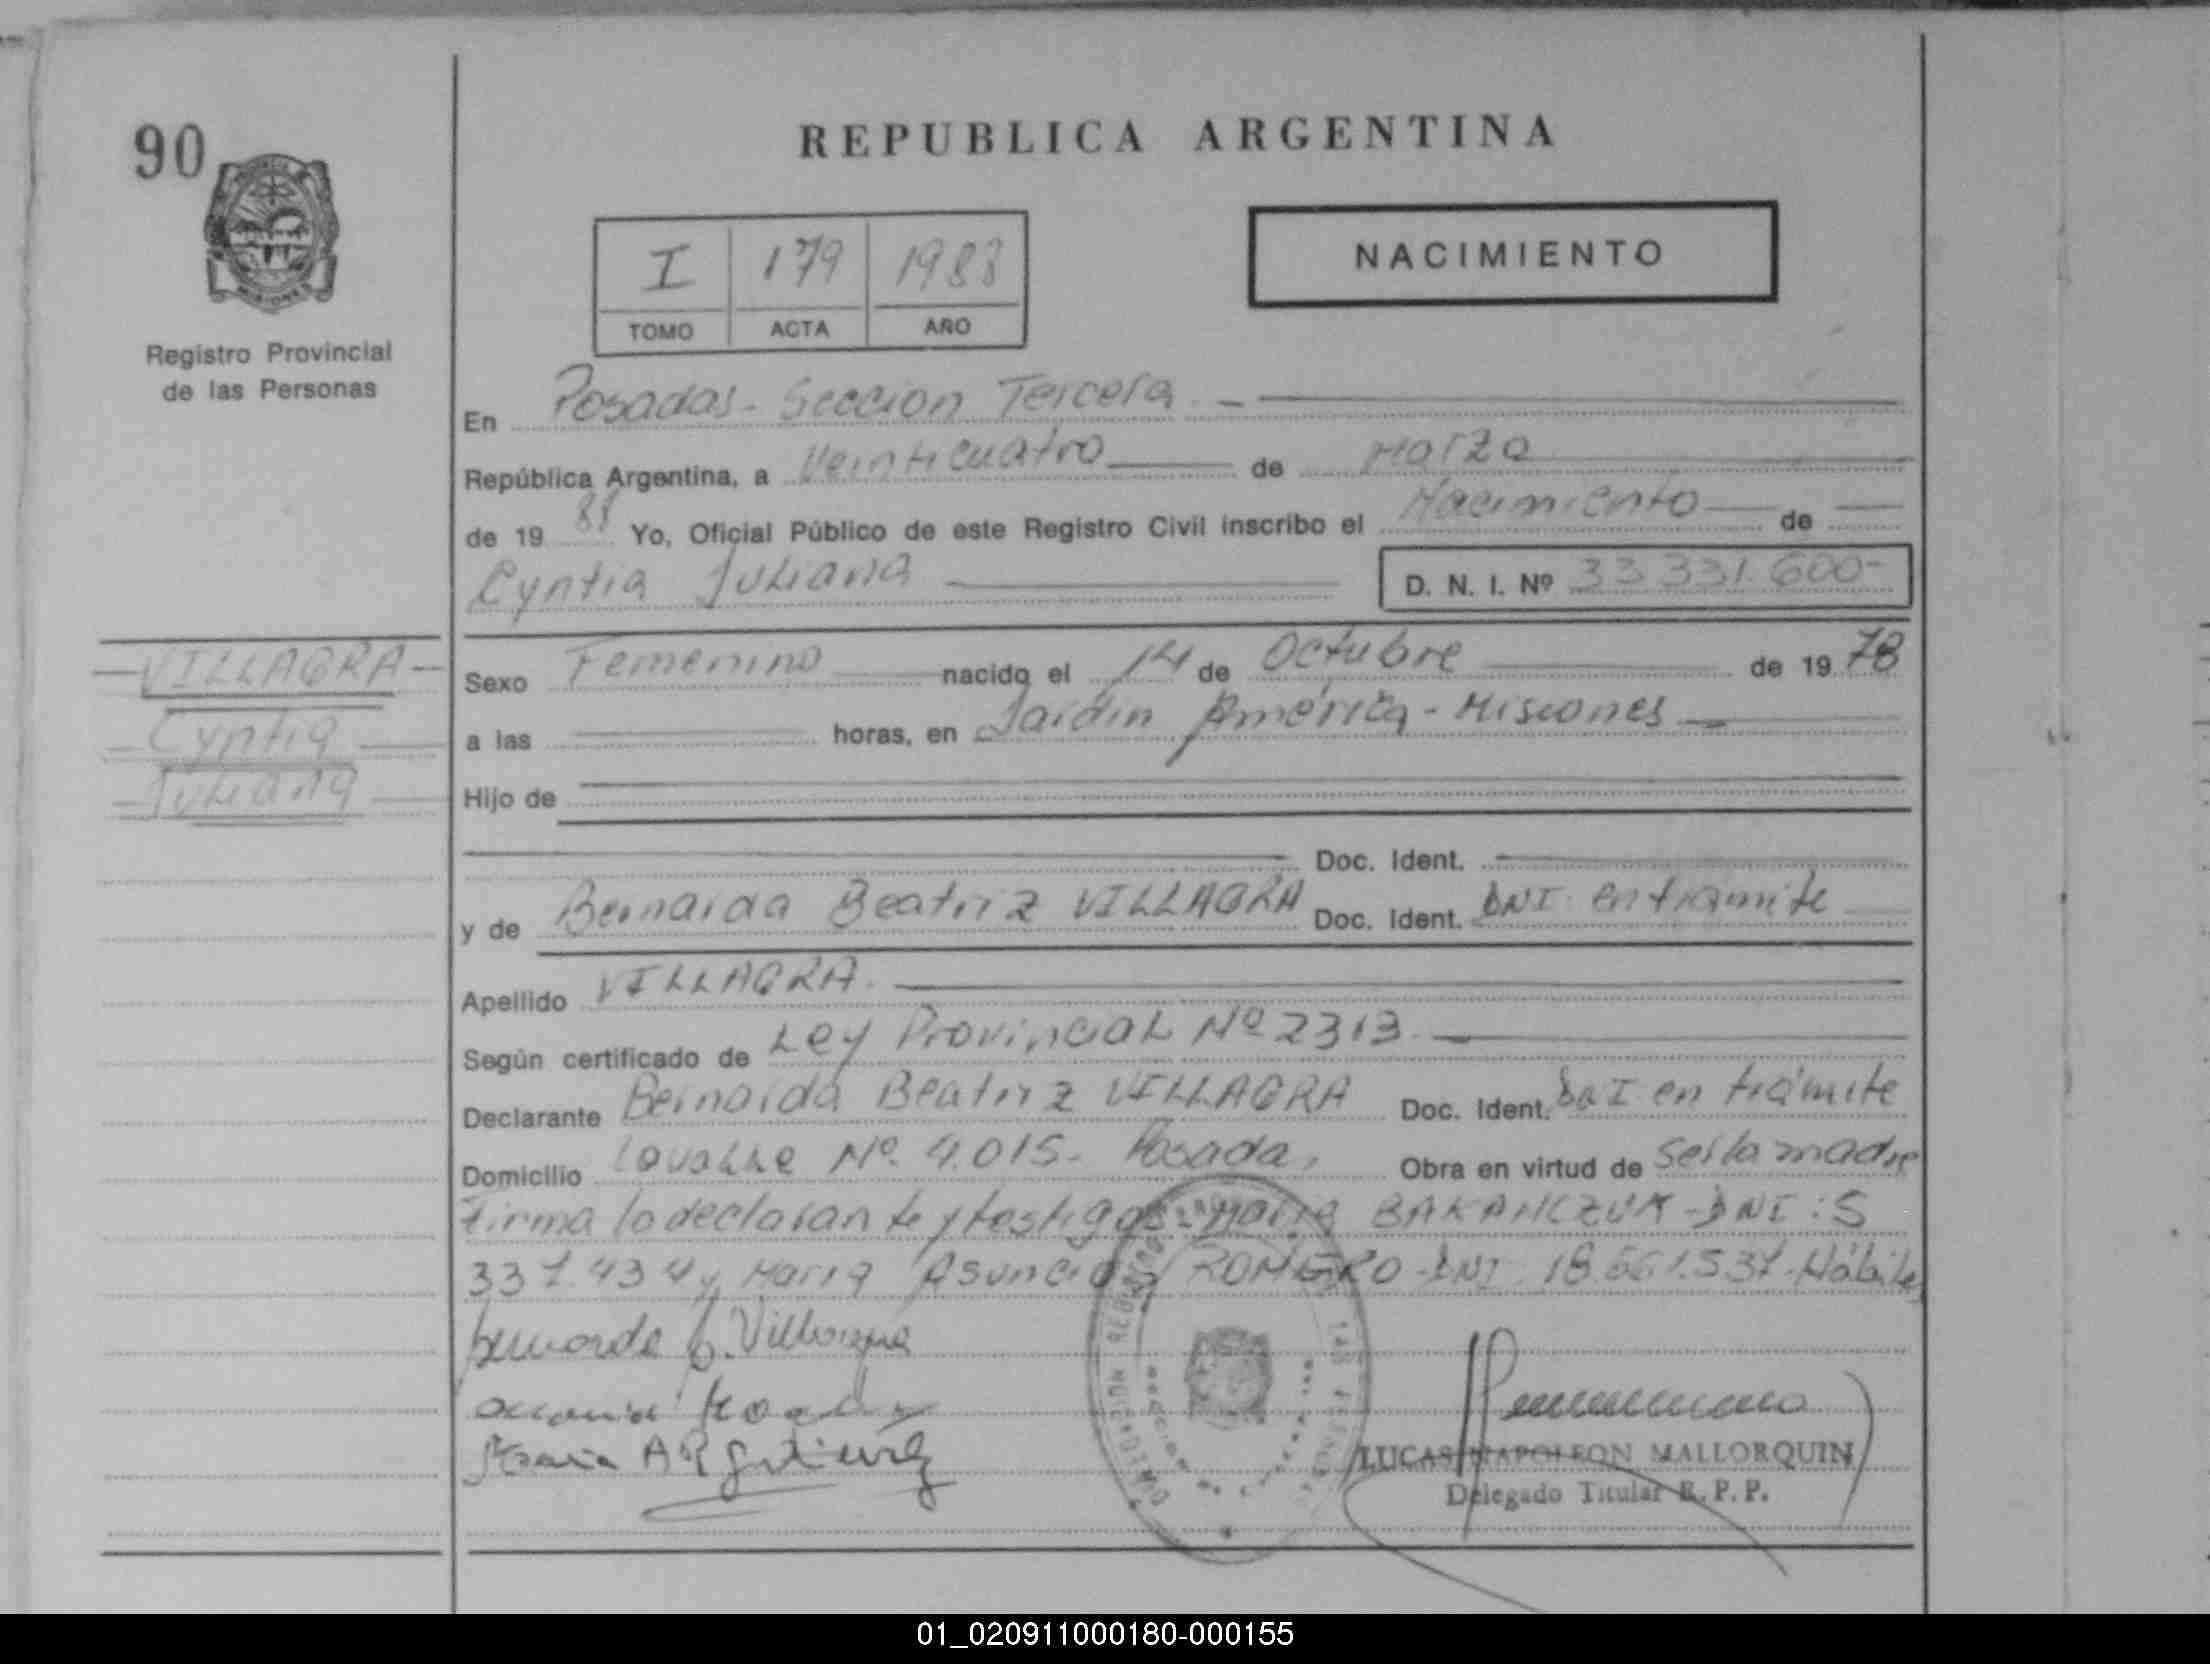 90
REPUBLICA ARGENTINA
NACIMIENTO
I 179 1988
TOMO ACTA AÑO
Registro Provincial
de las Personas
En Posadas - Sección Tercera. -
República Argentina, a Veinticuatro de Marzo
de 19 88 Yo, Oficial Público de este Registro Civil inscribo el Nacimiento de
Cyntia Juliana D. N. I. Nº 33 331.600-
VILLAGRA
Cyntia
Juliana
Sexo Femenino nacido el 14 de Octubre de 19 78
a las horas, en Jardín América - Misiones
Hijo de
Doc. Ident.
y de Bernarda Beatriz VILLAGRA Doc. Ident. DNI en trámite
Apellido VILLAGRA.
Según certificado de Ley Provincial Nº 2313.
Declarante Bernarda Beatriz VILLAGRA Doc. Ident. DNI en trámite
Domicilio Lavalle Nº. 4.015. Posadas Obra en virtud de ser la madre
Firma la declarante y testigos: María - DNI: 5
337.434 y María Asunción ROMERO - DNI. 18.661.537. Hábiles
Bernarda B. Villagra
LUCAS NAPOLEON MALLORQUIN
Delegado Titular R. P. P.
01_020911000180-000155